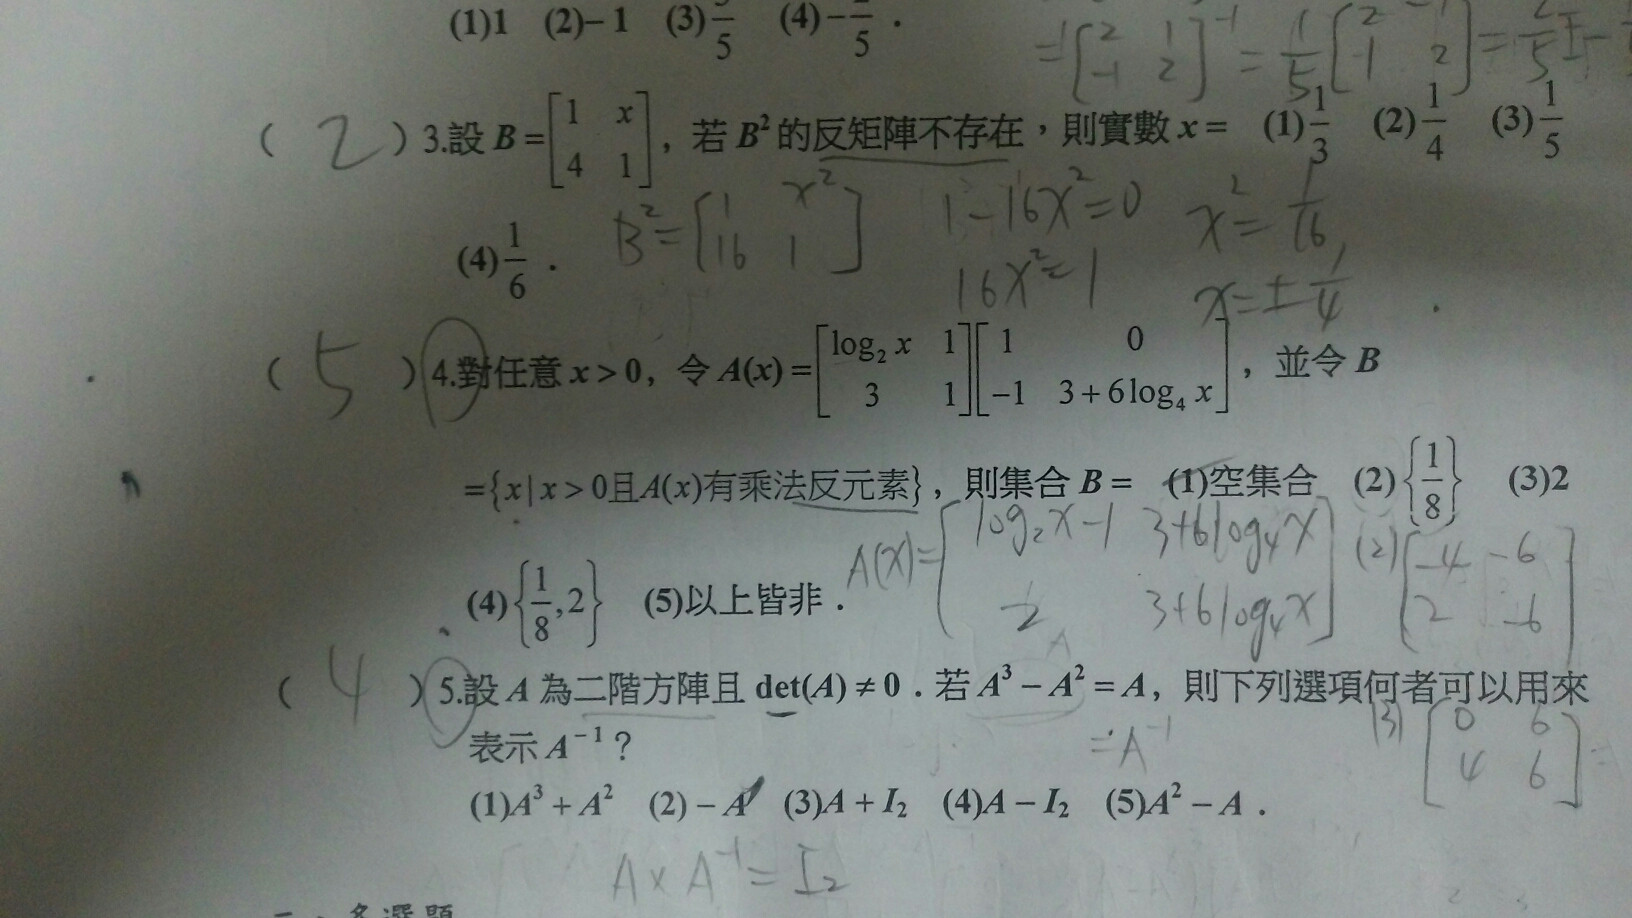 (1)1 (2)−1 (3) 5 (4)− 5 .
= [2 1 −1 2]⁻¹ = 1/5 [2 −1 1 2] = 2/5 I −
( 2 ) 3.設 B = [1 x 4 1], 若 B² 的反矩陣不存在,則實數 x = (1)1/3 (2)1/4 (3)1/5
(4)1/6 .
B² = [1 x² 16 1] 1−16x²=0 x² = 1/16
16x² = 1 x = ± 1/4
( 5 ) 4.對任意 x > 0, 令 A(x) = [log₂ x 1 3 1][1 0 −1 3 + 6 log₄ x], 並令 B
= {x | x > 0且A(x)有乘法反元素}, 則集合 B = (1)空集合 (2){1/8} (3)2
A(x) = [log₂x−1 3+6log₄x 2 3+6log₄x] (2) [−4 −6 2 −6]
(4){1/8, 2} (5)以上皆非 .
( 4 ) 5.設 A 為二階方陣且 det(A) ≠ 0 . 若 A³ − A² = A, 則下列選項何者可以用來
表示 A⁻¹ ?
= A⁻¹
(3) [0 6 4 6] =
(1)A³ + A² (2) − A (3)A + I₂ (4)A − I₂ (5)A² − A .
A × A⁻¹ = I₂
二、多選題